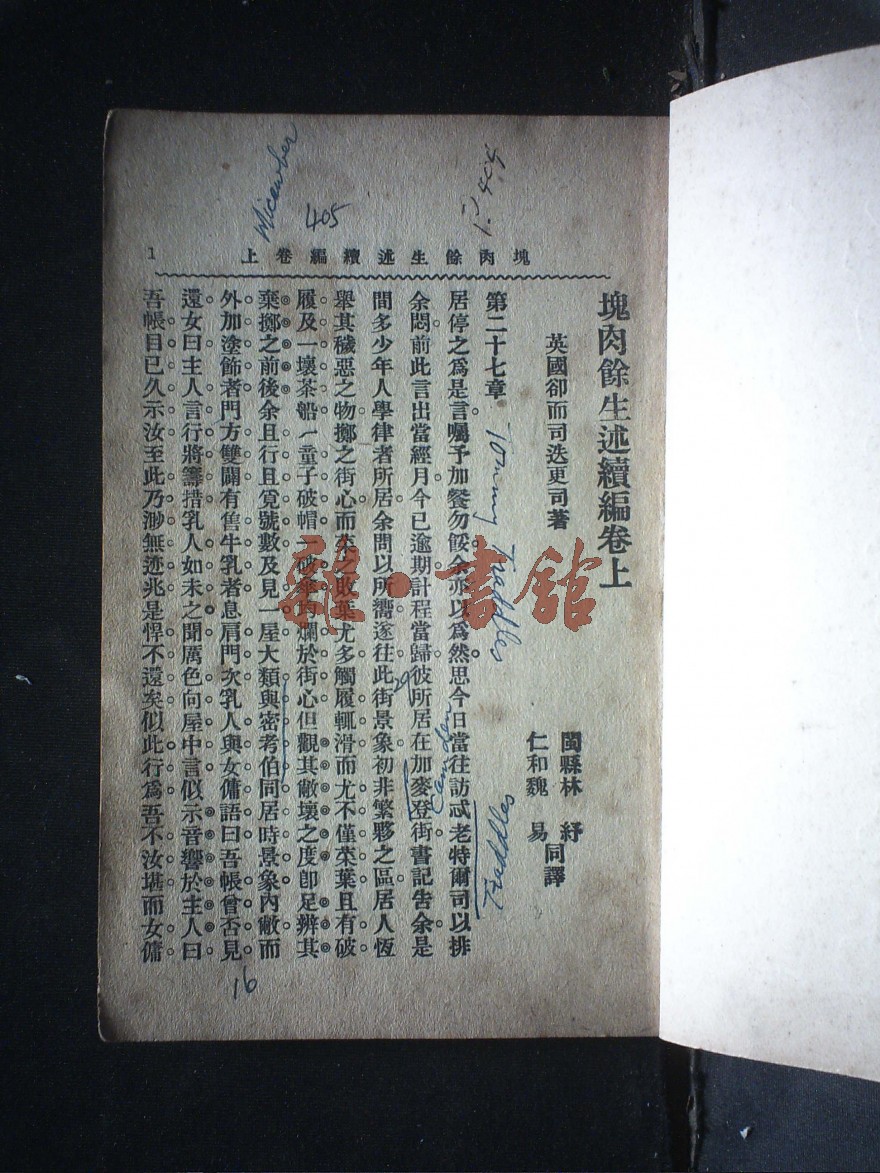 Micawber
405
p.404
塊肉餘生述續編卷上
1
塊肉餘生述續編卷上
英國卻而司迭更司著
閩縣林　紓
仁和魏　易
同譯
第二十七章
Tommy Traddles
居停之爲是言囑予加餐勿餒余亦以爲然思今日當往訪忒老特爾司以排
Traddles
余悶前此言出當經月今已逾期計程當歸彼所居在加麥登街書記告余是
Camden
間多少年人學律者所居余問以所嚮遂往此街景象初非繁夥之區居人恆
舉其穢惡之物擲之街心而菜之敗葉尤多觸履輒滑而尤不僅菜葉且有破
履及一壞茶船一童子破帽一破傘均爛於街心但觀其敝壞之度卽足辨其
棄擲之前後余且行且覓號數及見一屋大類與密考伯同居時景象內敝而
外加塗飾者門方雙闢有售牛乳者息肩門次乳人與女傭語曰吾帳曾否見
還女曰主人言行將籌措乳人如未之聞厲色向屋中言似示音響於主人曰
吾帳目已久示汝至此乃渺無迹兆是悍不還矣似此行爲吾不汝堪而女傭
16
雜·書館